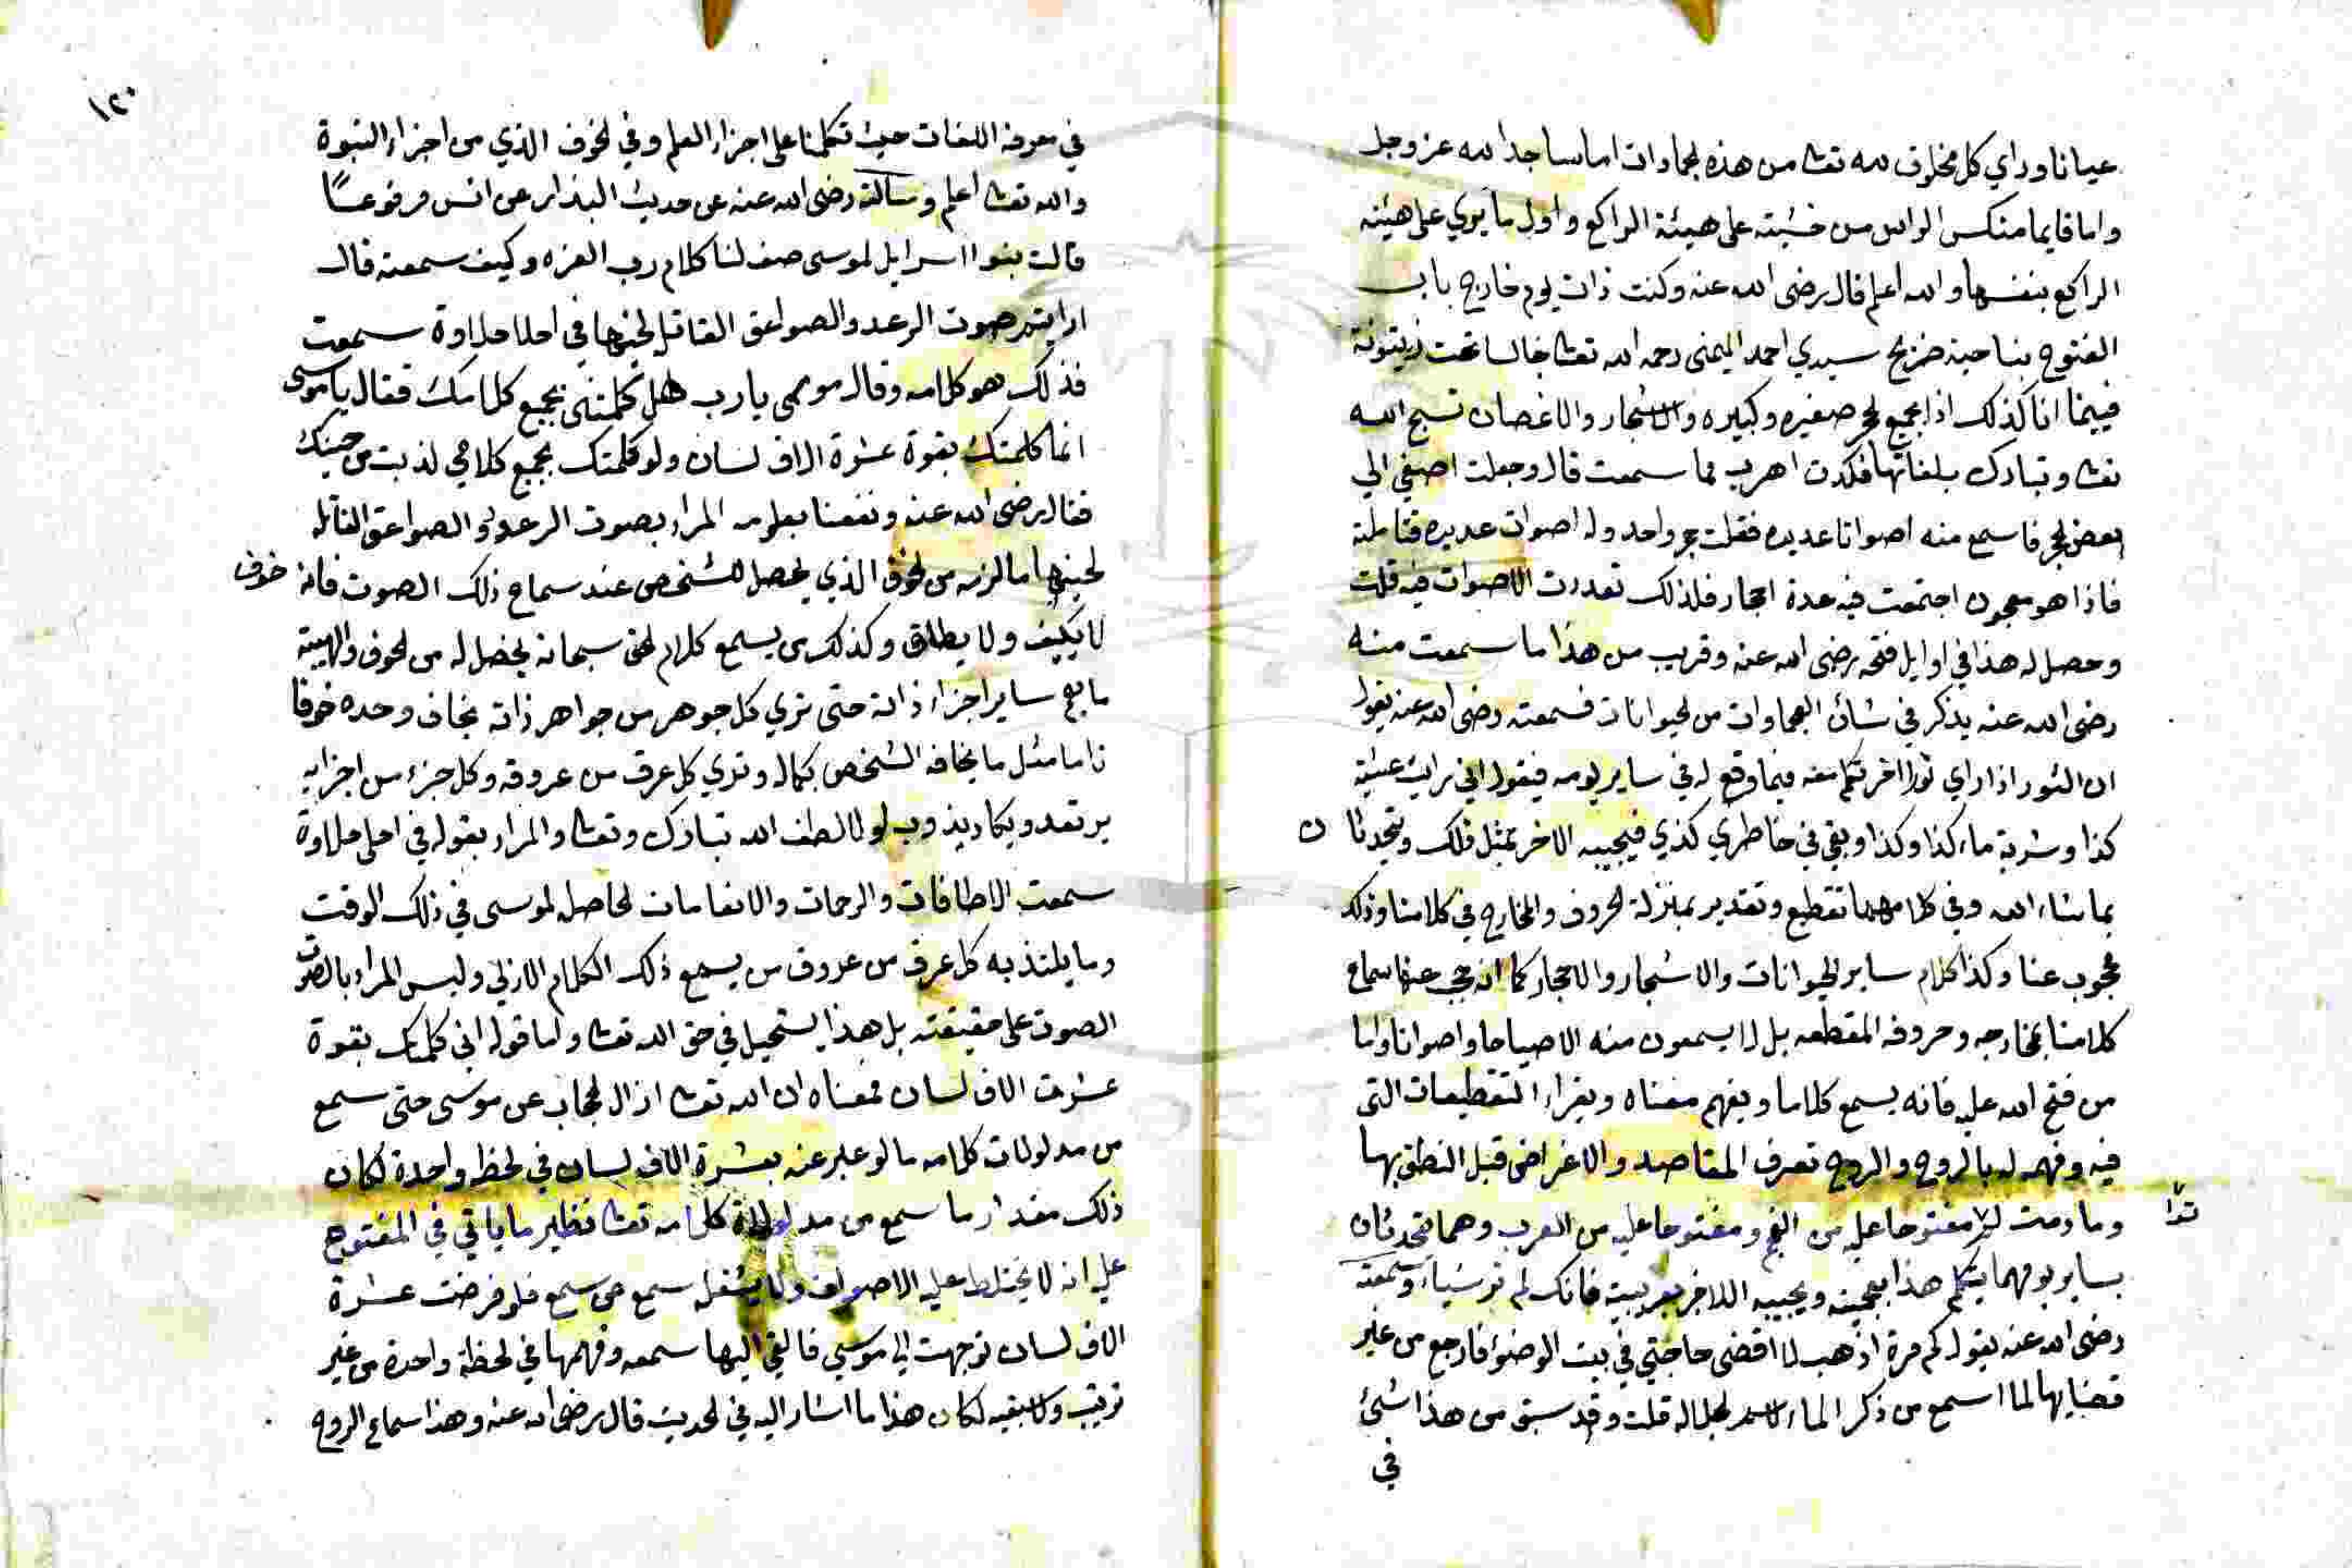 عيانا وراي كل مخلوق لله تعا من هذه الجمادات اما ساجدا لله عز وجل
واما قايما منكس الراس من خشيته على هيئة الراكع واول ما يري على هيئة
الراكع بنفسها والله اعلم قال رضى الله عنه وكنت ذات يوم خارج باب
الفتوح بناحية ضريح سيدي احمد اليمنى رحمه الله تعا جالسا تحت زيتونة
فبينما انا كذلك اذا بجميع الحجر صغيره وكبيره والاشجار والاغصان تسبح الله
تعا وتبارك بلغاتها فكدت اهرب مما سمعت قال وجعلت اصغي الي
بعض الحجر فاسمع منه اصواتا عديده فقلت حجر واحد وله اصوات عديده فتاملته
فاذا هو معجون اجتمعت فيه عدة احجار فلذلك تعددت الاصوات فيه قلت
وحصل له هذا في اوايل فتحه رضى الله عنه وقريب من هذا ما سمعت منه
رضى الله عنه يذكر في شان العجماوات من الحيوانات فسمعته رضى الله عنه يقول
ان الثور اذا راي ثورا اخر تكلم معه فيما وقع له في ساير يومه فيقول اني رايت عشية
كذا وشربة ماء كذا وكذا وبقي في خاطري كذي فيجيبه الاخر بمثل ذلك ويتحدثا ن
بما شاء الله وفي كلامهما تقطيع وتقدير بمنزلة الحروف والمخارج في كلامنا وذلك
محجوب عنا وكذا كلام ساير الحيوانات والاشجار والاحجار كما انه حجب عنها سماع
كلامنا بمخارجه وحروفه المقطعه بل لا يسمعون منه الا صياحا واصواتا واما
من فتح الله عليه فانه يسمع كلاما ويفهم معناه ويقراء التقطيعات التى
فيه وفهمه له بالروح والروح تعرف المقاصد والاغراض قبل النطق بها
وما دمت لم مفتوحا عليه من العجم ومفتوحا عليه من العرب وهما يتحدثان
بساير يومهما يتكلم هذا بعجميته ويجيبه الاخر بعربيته فانك لم تر شياء وسمعته
رضى الله عنه يقول كم مرة اذهب لا اقضى حاجتي في بيت الوضوء فارجع من غير
قضايها لما اسمع من ذكر الماء لاسم الجلاله قلت وقد سبق من هذا شئ
في
١٢٠
في معرفة اللغات حيث تكلمنا على اجزاء العلم وفي الخوف الذي من اجزاء النبوة
والله تعا اعلم وسالته رضى الله عنه عن حديث البزار عن انس مرفوعا
قالت بنوا اسرايل لموسى صف لنا كلام رب العزه وكيف سمعته قال
ارايتم صوت الرعد والصواعق القاتل لحينها في احلا حلاوة سمعت
فذلك هو كلامه وقال موسى يارب هل كلمتنى بجميع كلامك فقال ياموسى
انما كلمتك بقوة عشرة الاف لسان ولو كلمتك بجميع كلامي لذبت من حينك
فقال رضى الله عنه ونفعنا بعلومه المراد بصوت الرعد والصواعق القاتله
لحينها ما لزمه من الخوف الذي يحصل للشخص عند سماع ذلك الصوت فانه خوف
لا يكيف ولا يطاق وكذلك من يسمع كلام الحق سبحانه يحصل له من الخوف والهيبة
ما يعم ساير اجزاء ذاته حتى تري كل جوهر من جواهر ذاته يخاف وحده خوفا
تاما مثل ما يخافه الشخص بكماله وتري كل عرق من عروقه وكل جزء من اجزايه
يرتعد ويكاد يذوب لولا لطف الله تبارك وتعا والمراد بقوله في احلى حلاوة
سمعت الالطافات والرحمات والانعامات الحاصله لموسى في ذلك الوقت
وما يلتذ به كل عرق من عروق من يسمع ذلك الكلام الازلي وليس المراد بالصوت
الصوت على حقيقته بل هذا يستحيل في حق الله تعا واما قوله اني كلمتك بقوة
عشرت الاف لسان فمعناه ان الله تعا ازال الحجاب عن موسى حتى سمع
من مدلولات كلامه ما لو عبر عنه بعشرة الاف لسان في لحظة واحدة لكان
ذلك مقدار ما سمع من كلامه تعا نظير ما ياتي في المفتوح
عليه انه لا يختلط عليه الاصوات ولا يشغله سمع عن سمع فلو فرضت عشرة
الاف لسان توجهت الى موسى فالقي اليها سمعه وفهمها في لحظة واحدة من غير
ترتيب ولا لكان هذا ما اشار اليه في الحديث قال رضى الله عنه وهذا سماع الروح